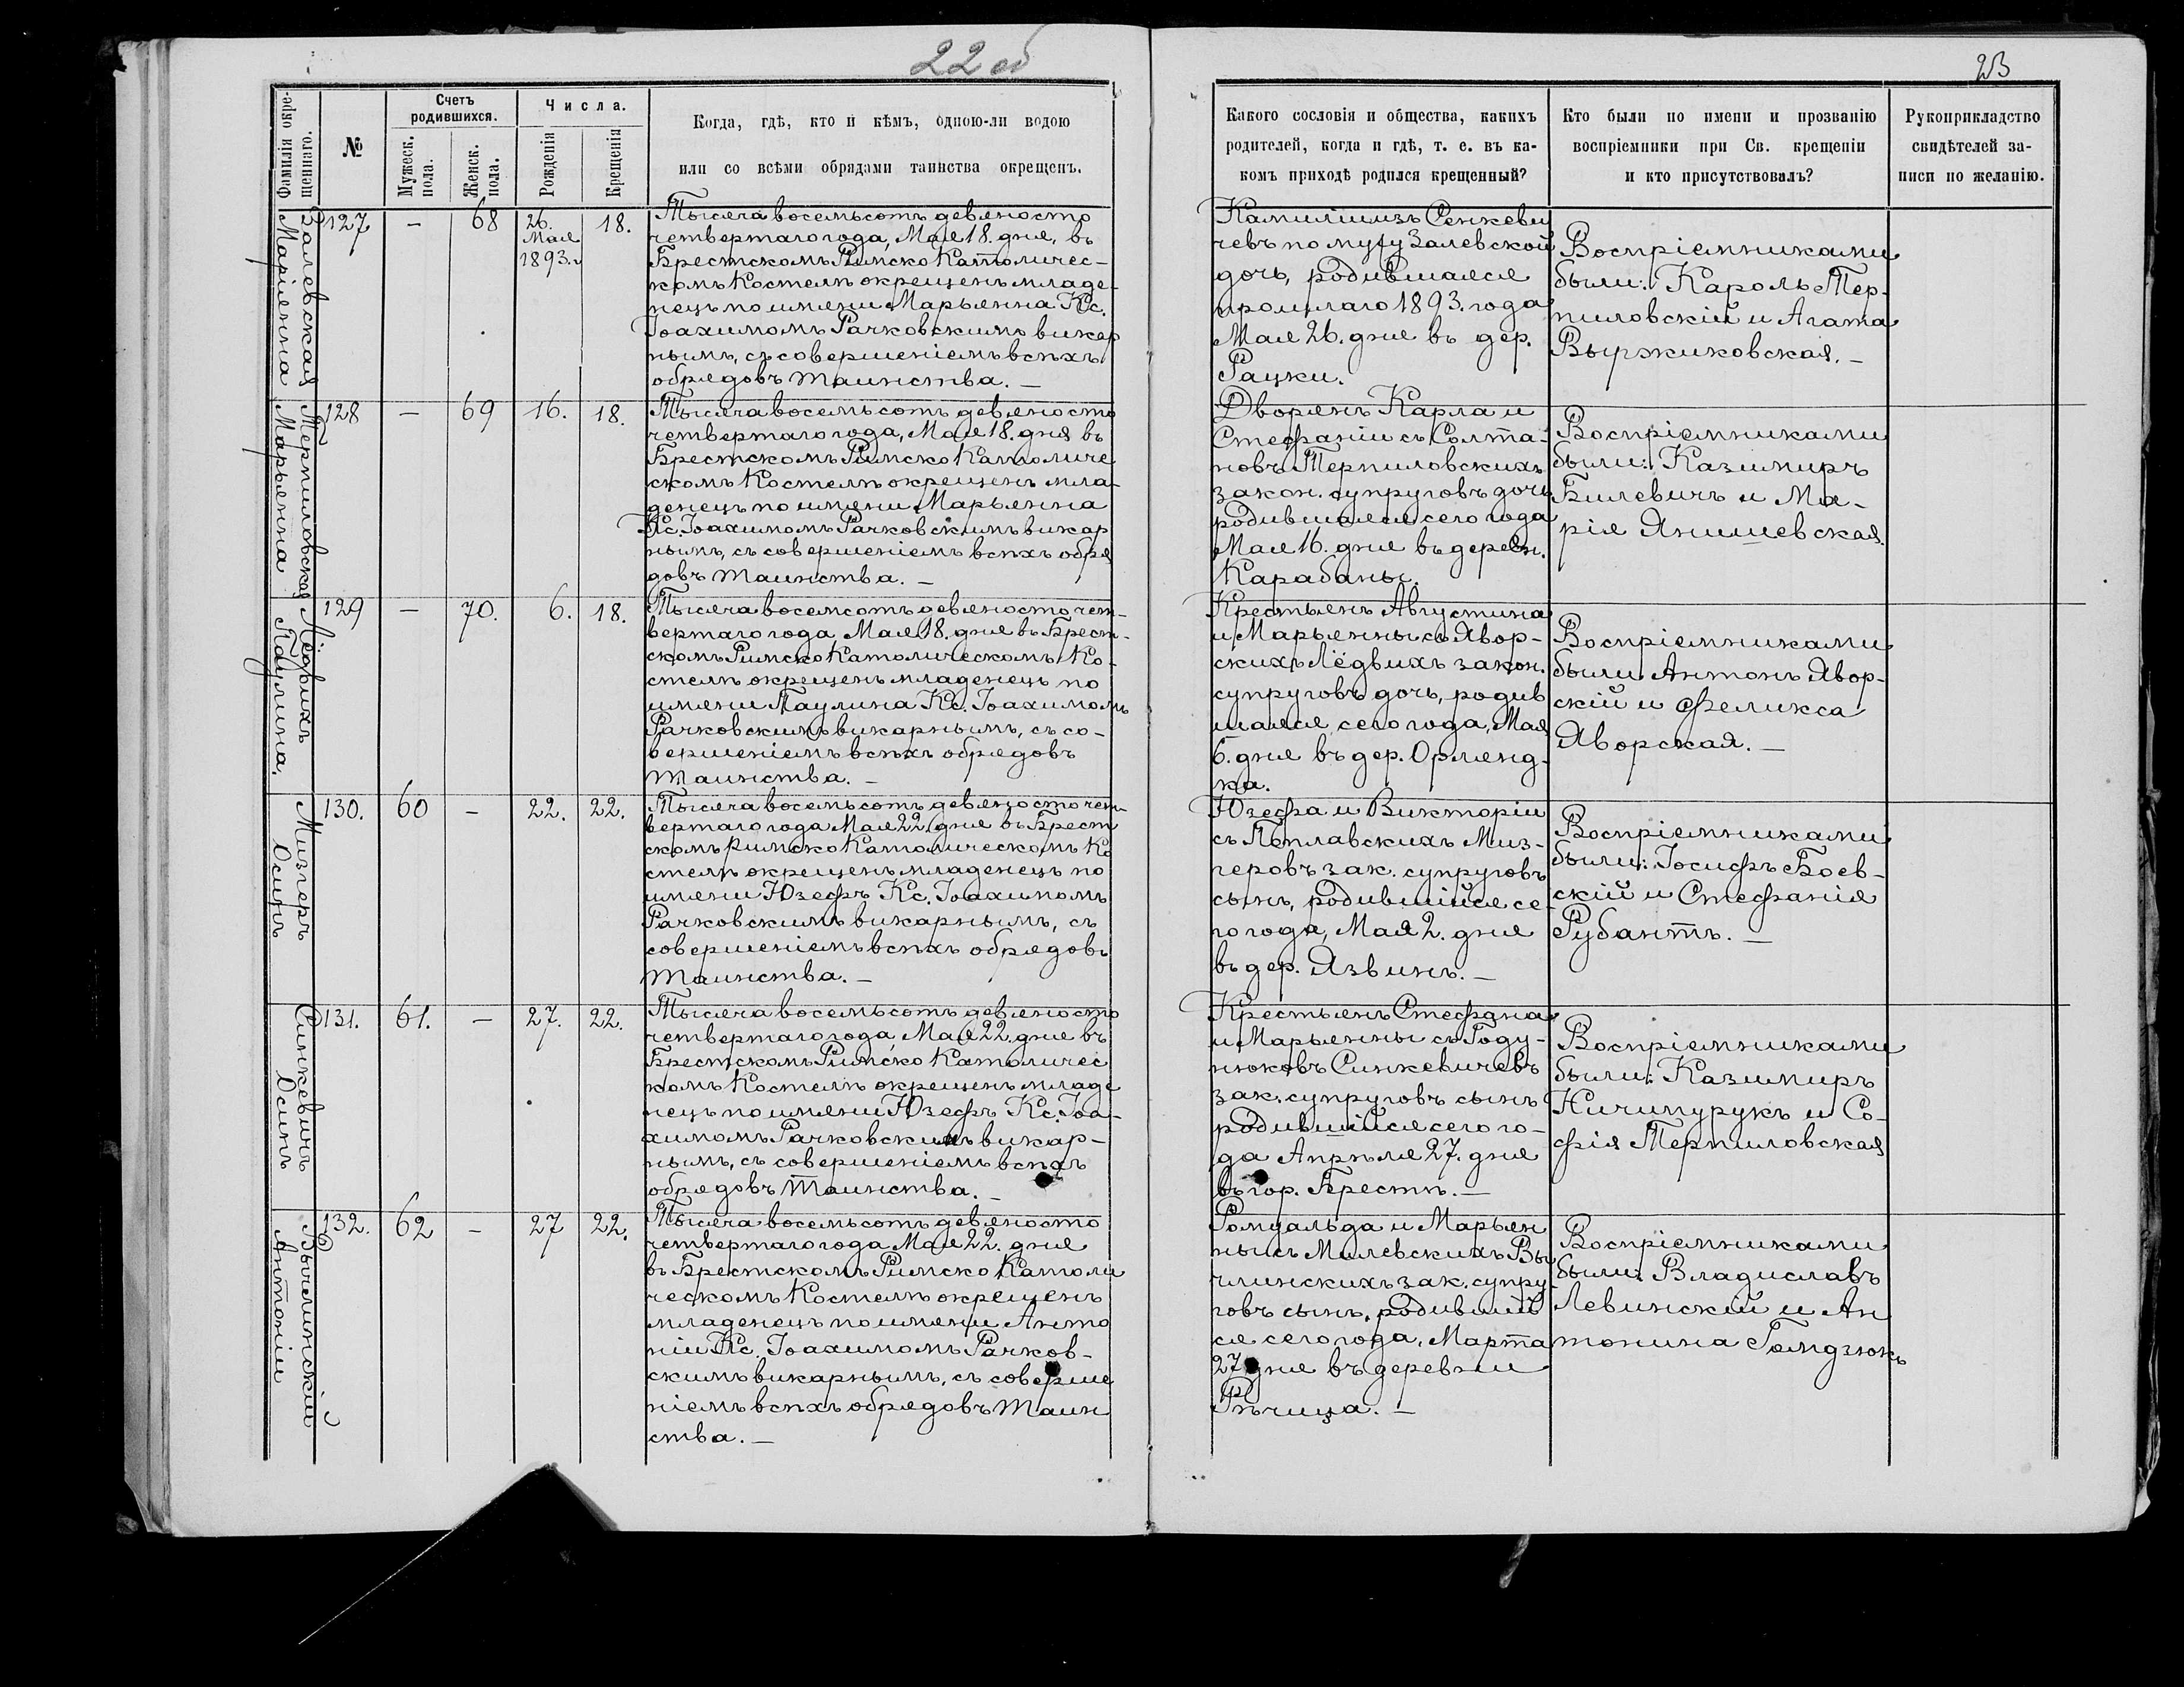 22 об
23
Фамилія окре-
щеннаго.
№
Счетъ
родившихся.
Мужеск.
пола.
Женск.
пола.
Числа.
Рожденія
Крещенія
Когда, гдѣ, кто и кѣмъ, одною-ли водою
или со всѣми обрядами таинства окрещенъ.
Какого сословія и общества, какихъ
родителей, когда и гдѣ, т. е. въ ка-
комъ приходѣ родился крещенный?
Кто были по имени и прозванію
воспріемники при Св. крещеніи
и кто присутствовалъ?
Рукоприкладство
свидѣтелей за-
писи по желанію.
Залевская
Маріянна
127
—
68
26.
Мая
1893.
18.
Тысяча восемьсотъ девяносто
четвертаго года, Мая 18. дня, въ
Брестскомъ Римско Католичес-
комъ Костелѣ окрещенъ младе-
нецъ по имени Марьянна Кс.
Іоахимомъ Рачковскимъ викар
нымъ, съ совершеніемъ всѣхъ
обрядовъ Таинства. —
Камиліи изъ Сенкеви
чевъ по мужу Залевской
дочь, родившаяся
прошлаго 1893. года
Мая 26. дня въ дер.
Рацки.
Воспріемниками
были: Кароль Тер-
пиловскій и Агата
Выржиковская. —
Терпиловская
Марьянна
128
—
69
16.
18.
Тысяча восемьсотъ девяносто
четвертаго года, Мая 18. дня въ
Брестскомъ Римско Католиче
скомъ Костелѣ окрещенъ мла-
денецъ по имени Марьянна
Кс. Іоахимомъ Рачковскимъ викар
нымъ, съ совершеніемъ всѣхъ обря
довъ Таинства. —
Дворянъ Карла и
Стефаніи съ Солта-
новъ Терпиловскихъ
закон. супруговъ дочь
родившаяся сего года
Мая 16. дня въ дерев.
Карабаны.
Воспріемниками
были: Казимиръ
Билевичъ и Ма-
рія Янишевская.
Лёдвихъ
Паулина.
129
—
70.
6.
18.
Тысяча восемсотъ девяносто чет-
вертаго года Мая 18. дня въ Брест-
скомъ Римско Католическомъ Ко-
стелѣ окрещенъ младенецъ по
имени Паулина Кс. Іоахимомъ
Рачковскимъ викарнымъ, съ со-
вершеніемъ всѣхъ обрядовъ
Таинства. —
Крестьянъ Августина
и Марьянны съ Явор-
скихъ Лёдвихъ закон.
супруговъ дочь, родив
шаяся сего года, Мая
6. дня въ дер. Орлянд-
ка.
Воспріемниками
были Антонъ Явор-
скій и Феликса
Яворская. —
Мизгеръ
Осипъ
130.
60
—
22.
22.
Тысяча восемьсотъ девяносто чет
вертаго года Мая 22. дня въ Брест
скомъ Римско Католическомъ Ко
стелѣ окрещенъ младенецъ по
имени Юзефъ Кс. Іоахимомъ
Рачковскимъ викарнымъ, съ
совершеніемъ всѣхъ обрядовъ
Таинства. —
Юзефа и Викторіи
съ Теплавскихъ Миз-
геровъ зак. супруговъ
сынъ, родившійся се-
го года, Мая 2. дня
въ дер. Язвинъ. —
Воспріемниками
были: Іосифъ Боев-
скій и Стефанія
Рубантъ. —
Синкевичъ
Осипъ
131.
61.
—
27.
22.
Тысяча восемьсотъ девяносто
четвертаго года, Мая 22. дня въ
Брестскомъ Римско Католичес
комъ Костелѣ окрещенъ младе
нецъ по имени Юзефъ Кс. Іоа-
химомъ Рачковскимъ викар-
нымъ, съ совершеніемъ всѣхъ
обрядовъ Таинства. —
Крестьянъ Стефана
и Марьянны съ Году-
нюковъ Синкевичевъ
зак. супруговъ сынъ
родившійся сего го-
да Апрѣля 27. дня
въ гор. Брестѣ. —
Воспріемниками
были: Казимиръ
Ничипурукъ и Со-
фія Терпиловская
Вычлинскій
Антоніи
132.
62
—
27
22.
Тысяча восемьсотъ девяносто
четвертаго года Мая 22. дня
въ Брестскомъ Римско Католи
ческомъ Костелѣ окрещенъ
младенецъ по имени Анто
ніи Кс. Іоахимомъ Рачков-
скимъ викарнымъ, съ соверше
ніемъ всѣхъ обрядовъ Таин
ства. —
Ромуальда и Марьян
ны съ Милевскихъ Вы
члинскихъ зак. супру
говъ сынъ, родивший
ся сего года, Марта
27 дня въ деревни
Рѣчица. —
Воспріемниками
были: Владиславъ
Левинскій и Ан
тонина Гомдзюкъ